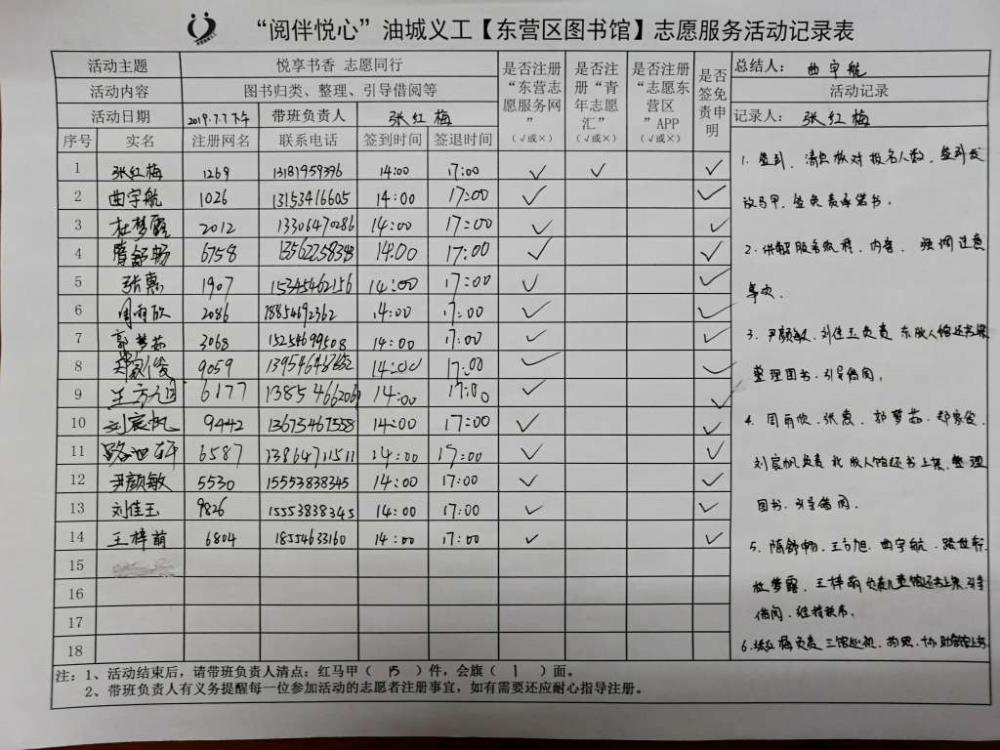 “阅伴悦心”油城义工【东营区图书馆】志愿服务活动记录表
活动主题 悦享书香 志愿同行
活动内容 图书归类、整理、引导借阅等
活动日期 2019.7.7下午 带班负责人 张红梅
序号 实名 注册网名 联系电话 签到时间 签退时间 是否注册“东营志愿服务网”(√或×) 是否注册“青年志愿汇”(√或×) 是否注册“志愿东营区”APP(√或×) 是否签免责申明
1 张红梅 1269 13181959396 14:00 17:00 √ √ √
2 曲宇航 1026 13153416605 14:00 17:00 √ √
3 杜梦露 2012 13306470286 14:00 17:00 √ √
4 隋舒畅 6758 14:00 17:00 √ √
5 张惠 1907 15345462156 14:00 17:00 √ √
6 周雨欣 2086 18854692362 14:00 17:00 √ √
7 郭梦茹 3068 15254699508 14:00 17:00 √ √
8 郑家俊 9059 14:00 17:00 √ √
9 王方旭 6177 14:00 17:00 √ √
10 刘宸帆 9442 13675467558 14:00 17:00 √ √
11 路世轩 6587 13864711511 14:00 17:00 √ √
12 尹颜敏 5530 15553838345 14:00 17:00 √ √
13 刘佳玉 9826 15553838345 14:00 17:00 √ √
14 王梓萌 6804 18554633160 14:00 17:00 √ √
15
16
17
18
总结人: 曲宇航
活动记录
记录人: 张红梅
1. 签到、清点核对报名人数、签到发
放马甲、签免责承诺书。
2. 讲解服务流程、内容、强调注意
事项.
3. 尹颜敏、刘佳玉负责 东成人馆还书上架
整理图书、引导借阅。
4. 周雨欣、张惠、郭梦茹、郑家俊、
刘宸帆负责北成人馆还书上架、整理
图书、引导借阅.
5. 隋舒畅、王方旭、曲宇航、路世轩、
杜梦露、王梓萌负责儿童馆还书上架、引导
借阅、维持秩序.
6. 张红梅负责三馆巡视、拍照、协助
注:1、活动结束后,请带班负责人清点:红马甲( 15 )件,会旗( 1 )面。
2、带班负责人有义务提醒每一位参加活动的志愿者注册事宜,如有需要还应耐心指导注册。